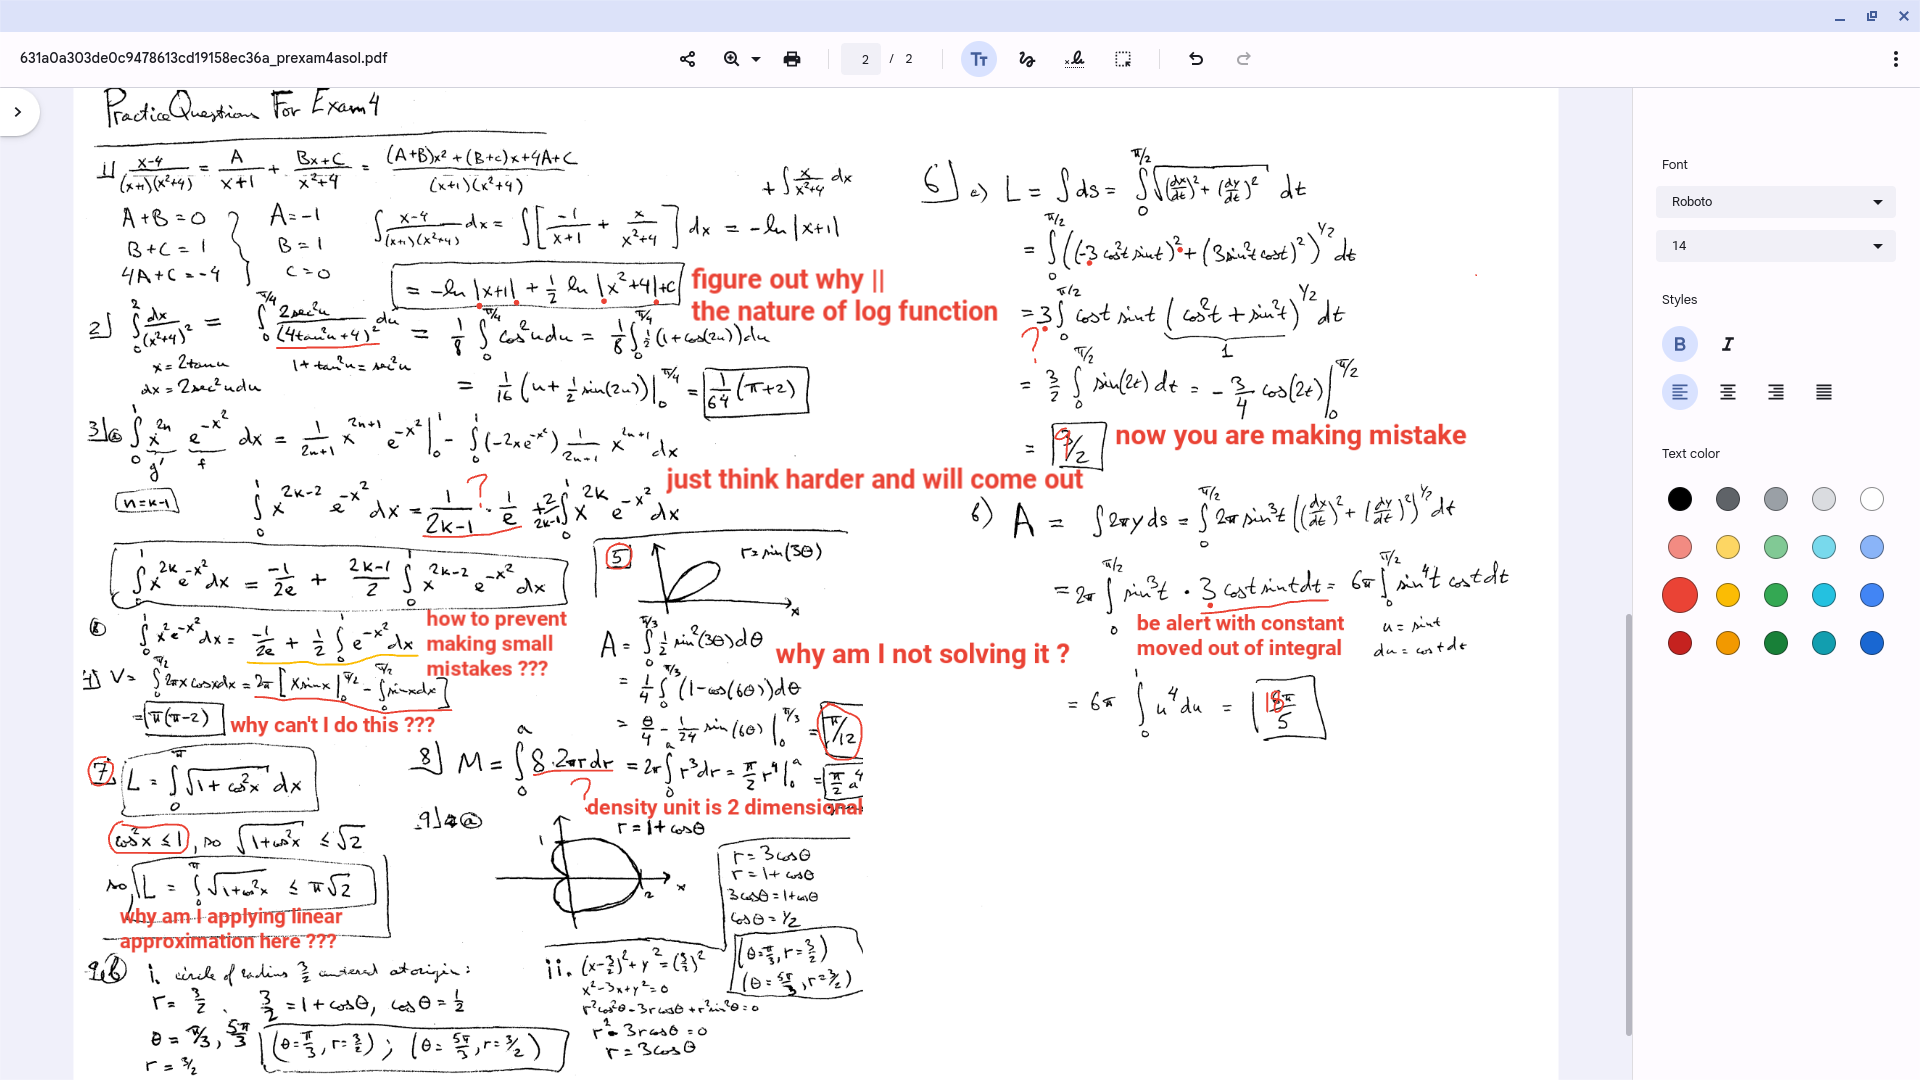 631a0a303de0c9478613cd19158ec36a_prexam4asol.pdf
2 / 2
Practice Questions For Exam 4
1] (x-4)/((x+1)(x²+4)) = A/(x+1) + (Bx+C)/(x²+4) = ((A+B)x²+(B+C)x+4A+C)/((x+1)(x²+4))
A+B=0
B+C=1
4A+C=-4
A=-1
B=1
C=0
∫ (x-4)/((x+1)(x²+4)) dx = ∫[-1/(x+1) + x/(x²+4)] dx = -ln|x+1|
+ ∫ x/(x²+4) dx
= -ln|x+1| + 1/2 ln|x²+4|+C
figure out why ||
the nature of log function
2] ∫₀² dx/(x²+4)² = ∫₀^(π/4) 2sec²u/(4tan²u+4)² du = 1/8 ∫₀^(π/4) cos²u du = 1/8 ∫₀^(π/4) 1/2 (1+cos(2u)) du
x=2tanu
dx=2sec²udu
1+tan²u=sec²u
= 1/16 (u+1/2 sin(2u))|₀^(π/4) = 1/64 (π+2)
3] a ∫₀¹ x^(2n) e^(-x²) dx = 1/(2n+1) x^(2n+1) e^(-x²)|₀¹ - ∫₀¹ (-2xe^(-x²)) 1/(2n+1) x^(2n+1) dx
g' f
n=k-1
∫₀¹ x^(2k-2) e^(-x²) dx = 1/(2k-1) · 1/e + 2/(2k-1) ∫₀¹ x^(2k) e^(-x²) dx
?
just think harder and will come out
∫₀¹ x^(2k) e^(-x²) dx = -1/2e + (2k-1)/2 ∫₀¹ x^(2k-2) e^(-x²) dx
b ∫₀¹ x²e^(-x²) dx = -1/2e + 1/2 ∫₀¹ e^(-x²) dx
how to prevent
making small
mistakes ???
4] V= ∫₀^(π/2) 2πx cosx dx = 2π[x sinx|₀^(π/2) - ∫₀^(π/2) sinx dx]
= π(π-2)
why can't I do this ???
5
r=sin(3θ)
x
A = ∫₀^(π/3) 1/2 sin²(3θ)dθ
why am I not solving it ?
= 1/4 ∫₀^(π/3) (1-cos(6θ))dθ
= θ/4 - 1/24 sin(6θ)|₀^(π/3) = π/12
7] L = ∫₀^π √(1+cos²x) dx
cos²x ≤ 1, so √(1+cos²x) ≤ √2
so, L = ∫₀^π √(1+cos²x) ≤ π√2
why am I applying linear
approximation here ???
8] M = ∫₀^a δ·2πrdr = 2π ∫₀^a r³dr = π/2 r⁴|₀^a = π/2 a⁴
?
density unit is 2 dimensional
9] a
r=1+cosθ
1
2
x
r=3cosθ
r=1+cosθ
3cosθ=1+cosθ
cosθ=1/2
(θ=π/3, r=3/2)
(θ=5π/3, r=3/2)
9b i. circle of radius 3/2 centered at origin:
r=3/2, 3/2=1+cosθ, cosθ=1/2
θ=π/3, 5π/3
r=3/2
(θ=π/3, r=3/2); (θ=5π/3, r=3/2)
ii. (x-3/2)²+y²=(3/2)²
x²-3x+y²=0
r²cos²θ-3rcosθ+r²sin²θ=0
r²-3rcosθ=0
r=3cosθ
6] a) L = ∫ds = ∫₀^(π/2) √((dx/dt)²+(dy/dt)²) dt
= ∫₀^(π/2) ((-3cos²t sint)²+(3sin²t cost)²)^(1/2) dt
= 3 ∫₀^(π/2) cost sint (cos²t+sin²t)^(1/2) dt
?
1
= 3/2 ∫₀^(π/2) sin(2t) dt = -3/4 cos(2t)|₀^(π/2)
= 9/2
now you are making mistake
b) A = ∫2πyds = ∫₀^(π/2) 2π sin³t ((dx/dt)²+(dy/dt)²)^(1/2) dt
= 2π ∫₀^(π/2) sin³t · 3 cost sint dt = 6π ∫₀^(π/2) sin⁴t cost dt
be alert with constant
moved out of integral
u=sint
du=costdt
= 6π ∫₀¹ u⁴du = 18π/5
Font
Roboto
14
Styles
B I
Text color